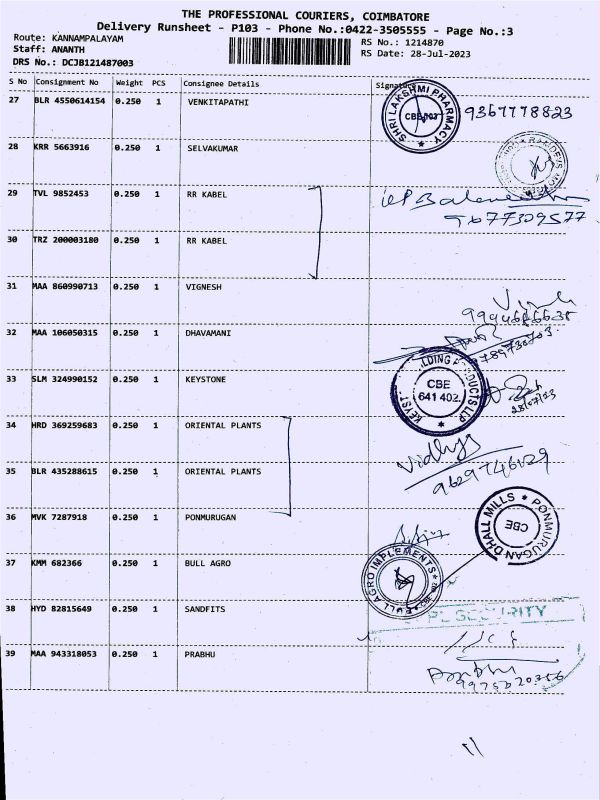 THE PROFESSIONAL COURIERS, COIMBATORE
Delivery Runsheet - P103 - Phone No.:0422-3505555 - Page No.:3
Route: KANNAMPALAYAM
RS No.: 1214870
Staff: ANANTH
RS Date: 28-Jul-2023
DRS No.: DCJB121487003
S No Consignment No Weight PCS Consignee Details Signature
27 BLR 4550614154 0.250 1 VENKITAPATHI
SHRI LAKSHMI PHARMACY
9367778823
28 KRR 5663916 0.250 1 SELVAKUMAR
29 TVL 9852453 0.250 1 RR KABEL
9677309577
30 TRZ 200003180 0.250 1 RR KABEL
31 MAA 860990713 0.250 1 VIGNESH
32 MAA 106050315 0.250 1 DHAVAMANI
33 SLM 324990152 0.250 1 KEYSTONE
CBE
641 402.
28/07/23
34 HRD 369259683 0.250 1 ORIENTAL PLANTS
Vidhya
9629746129
35 BLR 435288615 0.250 1 ORIENTAL PLANTS
36 MVK 7287918 0.250 1 PONMURUGAN
PONMURUGAN DHALL MILLS
CBE
37 KMM 682366 0.250 1 BULL AGRO
BULL AGRO IMPLEMENTS
38 HYD 82815649 0.250 1 SANDFITS
SECURITY
39 MAA 943318053 0.250 1 PRABHU
Prabhu